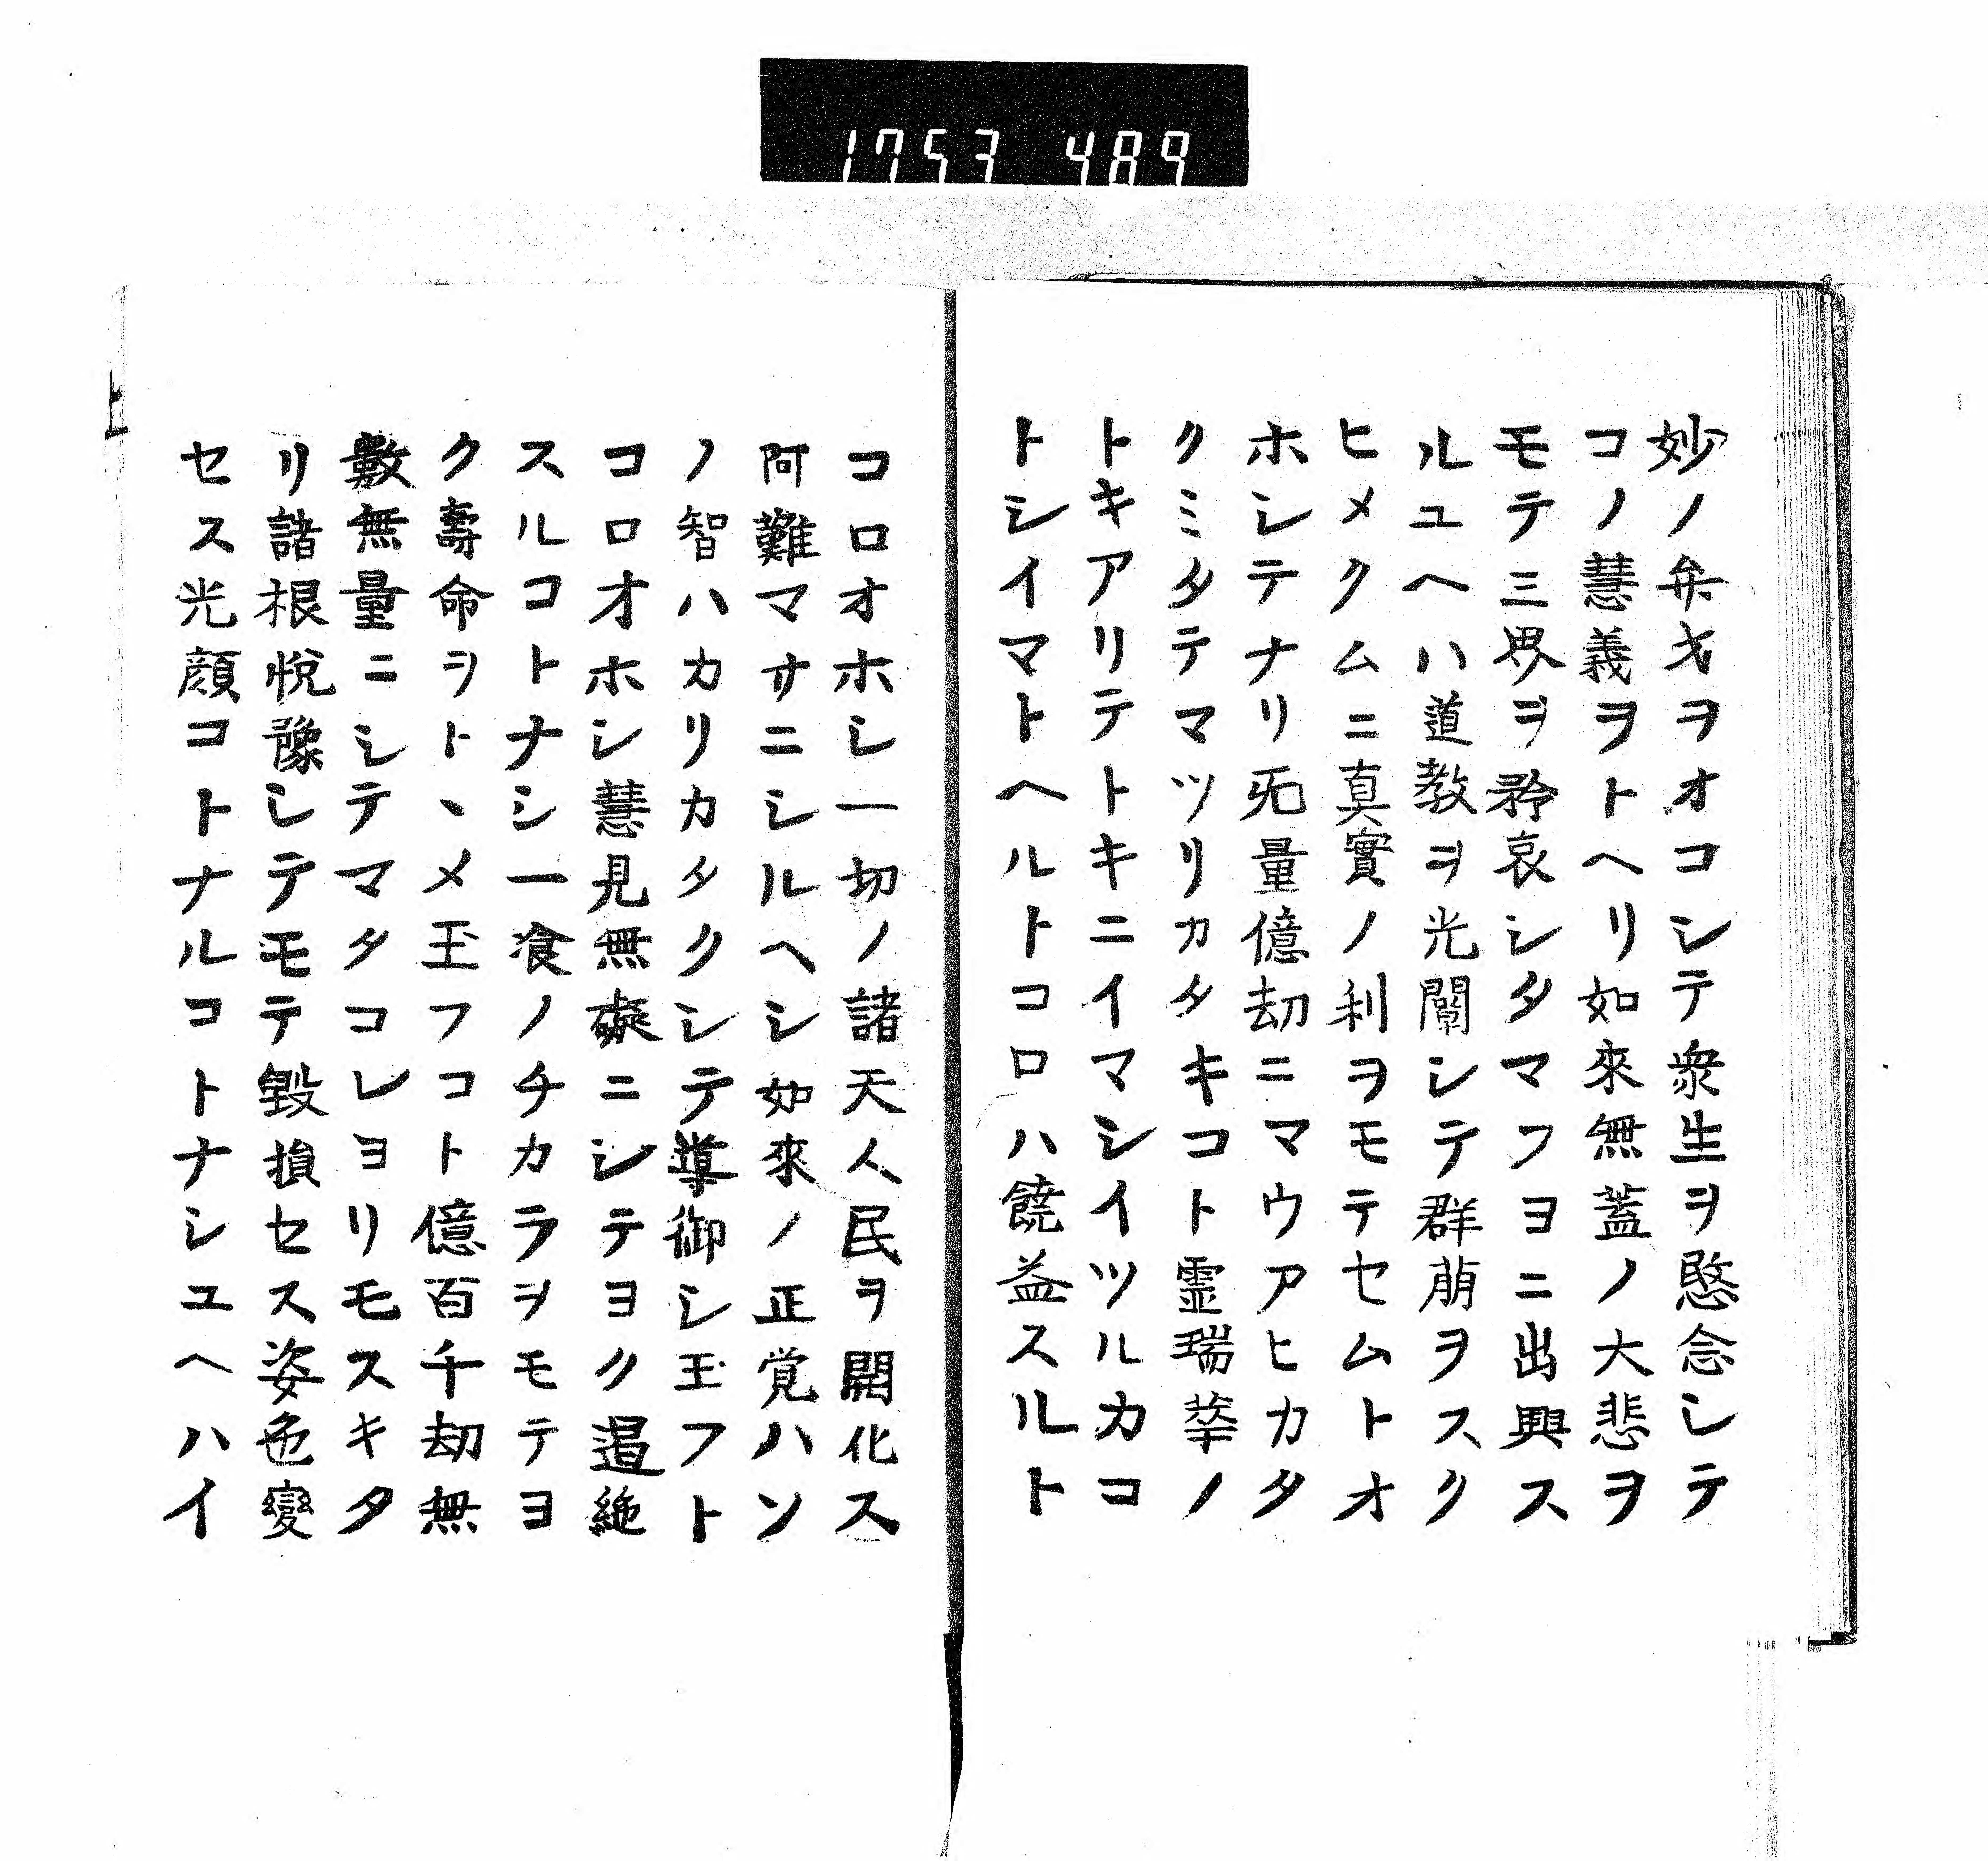 1753 489
妙ノ弁才ヲオコシテ衆生ヲ愍念シテ
コノ慧義ヲトヘリ如來無蓋ノ大悲ヲ
モテ三界ヲ矜哀シタマフヨニ出興ス
ルユヘハ道教ヲ光闡シテ群萠ヲスク
ヒメクムニ真實ノ利ヲモテセムトオ
ホシテナリ旡量億劫ニマウアヒカタ
クミタテマツリカタキコト霊瑞華ノ
トキアリテトキニイマシイツルカコ
トシイマトヘルトコロハ饒益スルト
コロオホシ一切ノ諸天人民ヲ開化ス
阿難マサニシルヘシ如來ノ正覚ハソ
ノ智ハカリカタクシテ導御シ玉フト
コロオホシ慧見無礙ニシテヨク遏絶
スルコトナシ一飡ノチカラヲモテヨ
ク壽命ヲトヽメ玉フコト億百千劫無
數無量ニシテマタコレヨリモスキタ
リ諸根悅豫シテモテ毀損セス姿色變
セス光顔コトナルコトナシユヘハイ
上